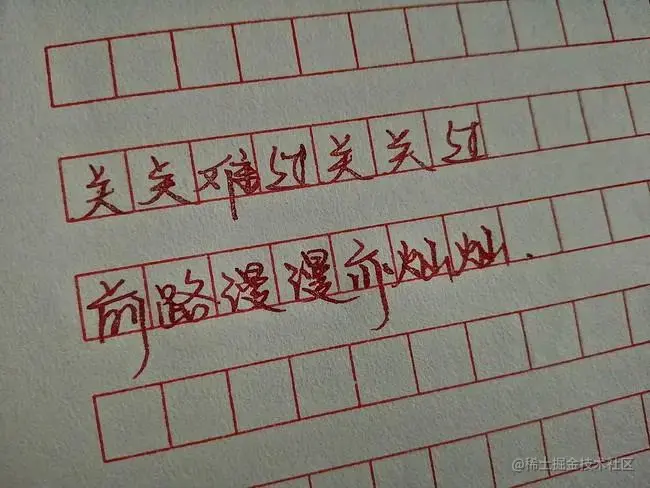 关关难过关关过
前路漫漫亦灿灿.
@稀土掘金技术社区